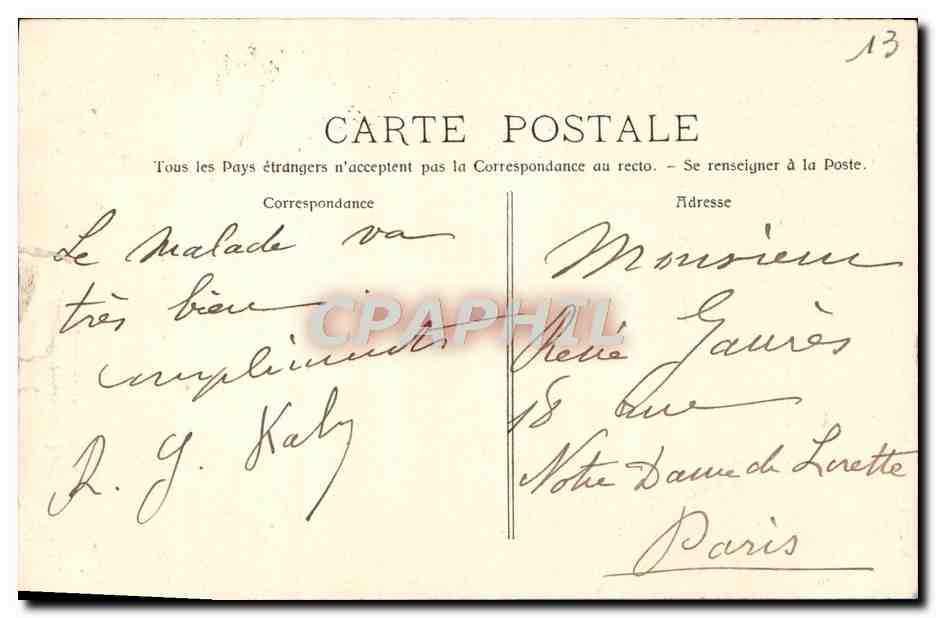 13
CARTE POSTALE
Tous les Pays étrangers n'acceptent pas la Correspondance au recto. – Se renseigner à la Poste.
Correspondance
Le malade va
très bien
compliments
R. G. Kahy
Adresse
Monsieur
René Gaurès
18 rue
Notre Dame de Lorette
Paris
CPAPHIL